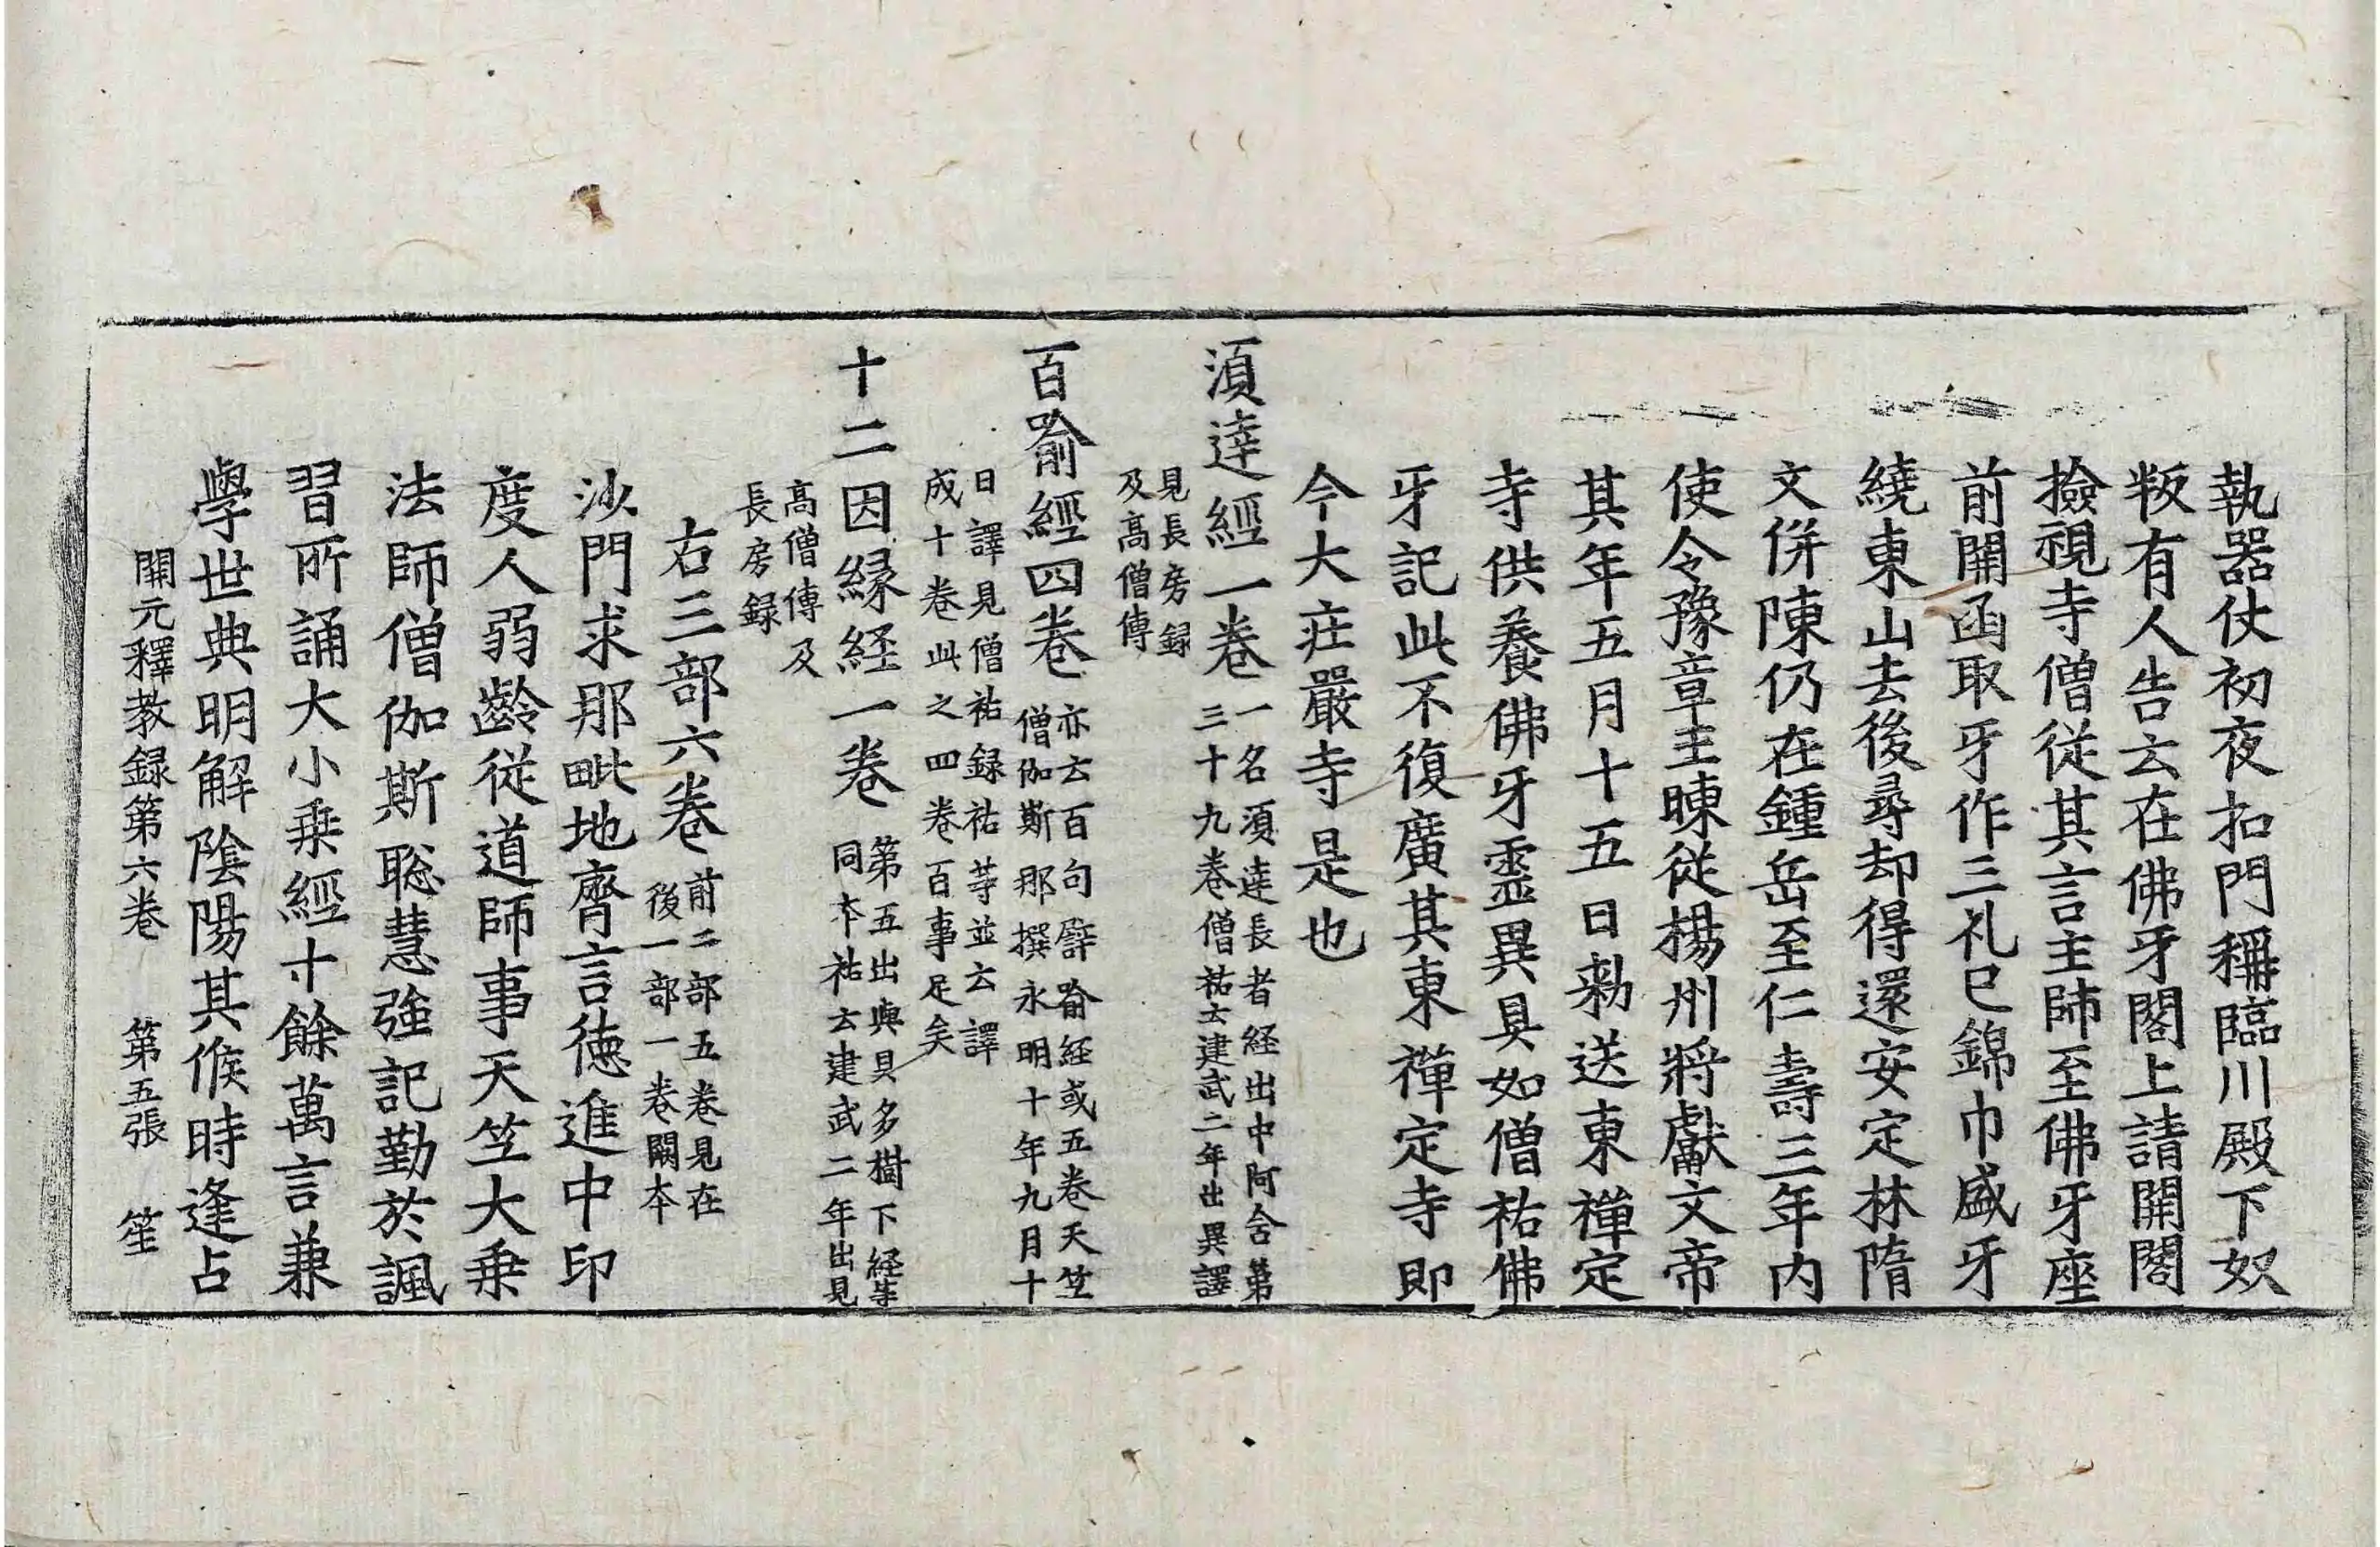 執器仗初夜扣門稱臨川殿下奴
叛有人告云在佛牙閣上請開閣
撿視寺僧從其言主師至佛牙座
前開函取牙作三礼已錦巾盛牙
繞東山去後尋却得還安定林隋
文併陳仍在鍾岳至仁壽三年內
使令豫章主暕從楊州將獻文帝
其年五月十五日勑送東禪定
寺供養佛牙靈異具如僧祐佛
牙記此不復廣其東禪定寺即
今大莊嚴寺是也
須達經一卷一名須達長者経出中阿含第
三十九卷僧祐云建武二年出異譯
見長房録
及高僧傳
百喻經四卷亦云百句譬喻経或五卷天竺
僧伽斯那撰永明十年九月十
日譯見僧祐録祐等並云譯
成十卷此之四卷百事足矣
十二因緣経一卷第五出與貝多樹下経等
同本祐云建武二年出見
高僧傳及
長房録
右三部六卷前二部五卷見在
後一部一卷闕本
沙門求那毗地齊言德進中印
度人弱齡從道師事天竺大乗
法師僧伽斯聡慧強記勤於諷
習所誦大小乗經十餘萬言兼
學世典明解陰陽其候時逢占
開元釋教録第六卷　第五張　笙